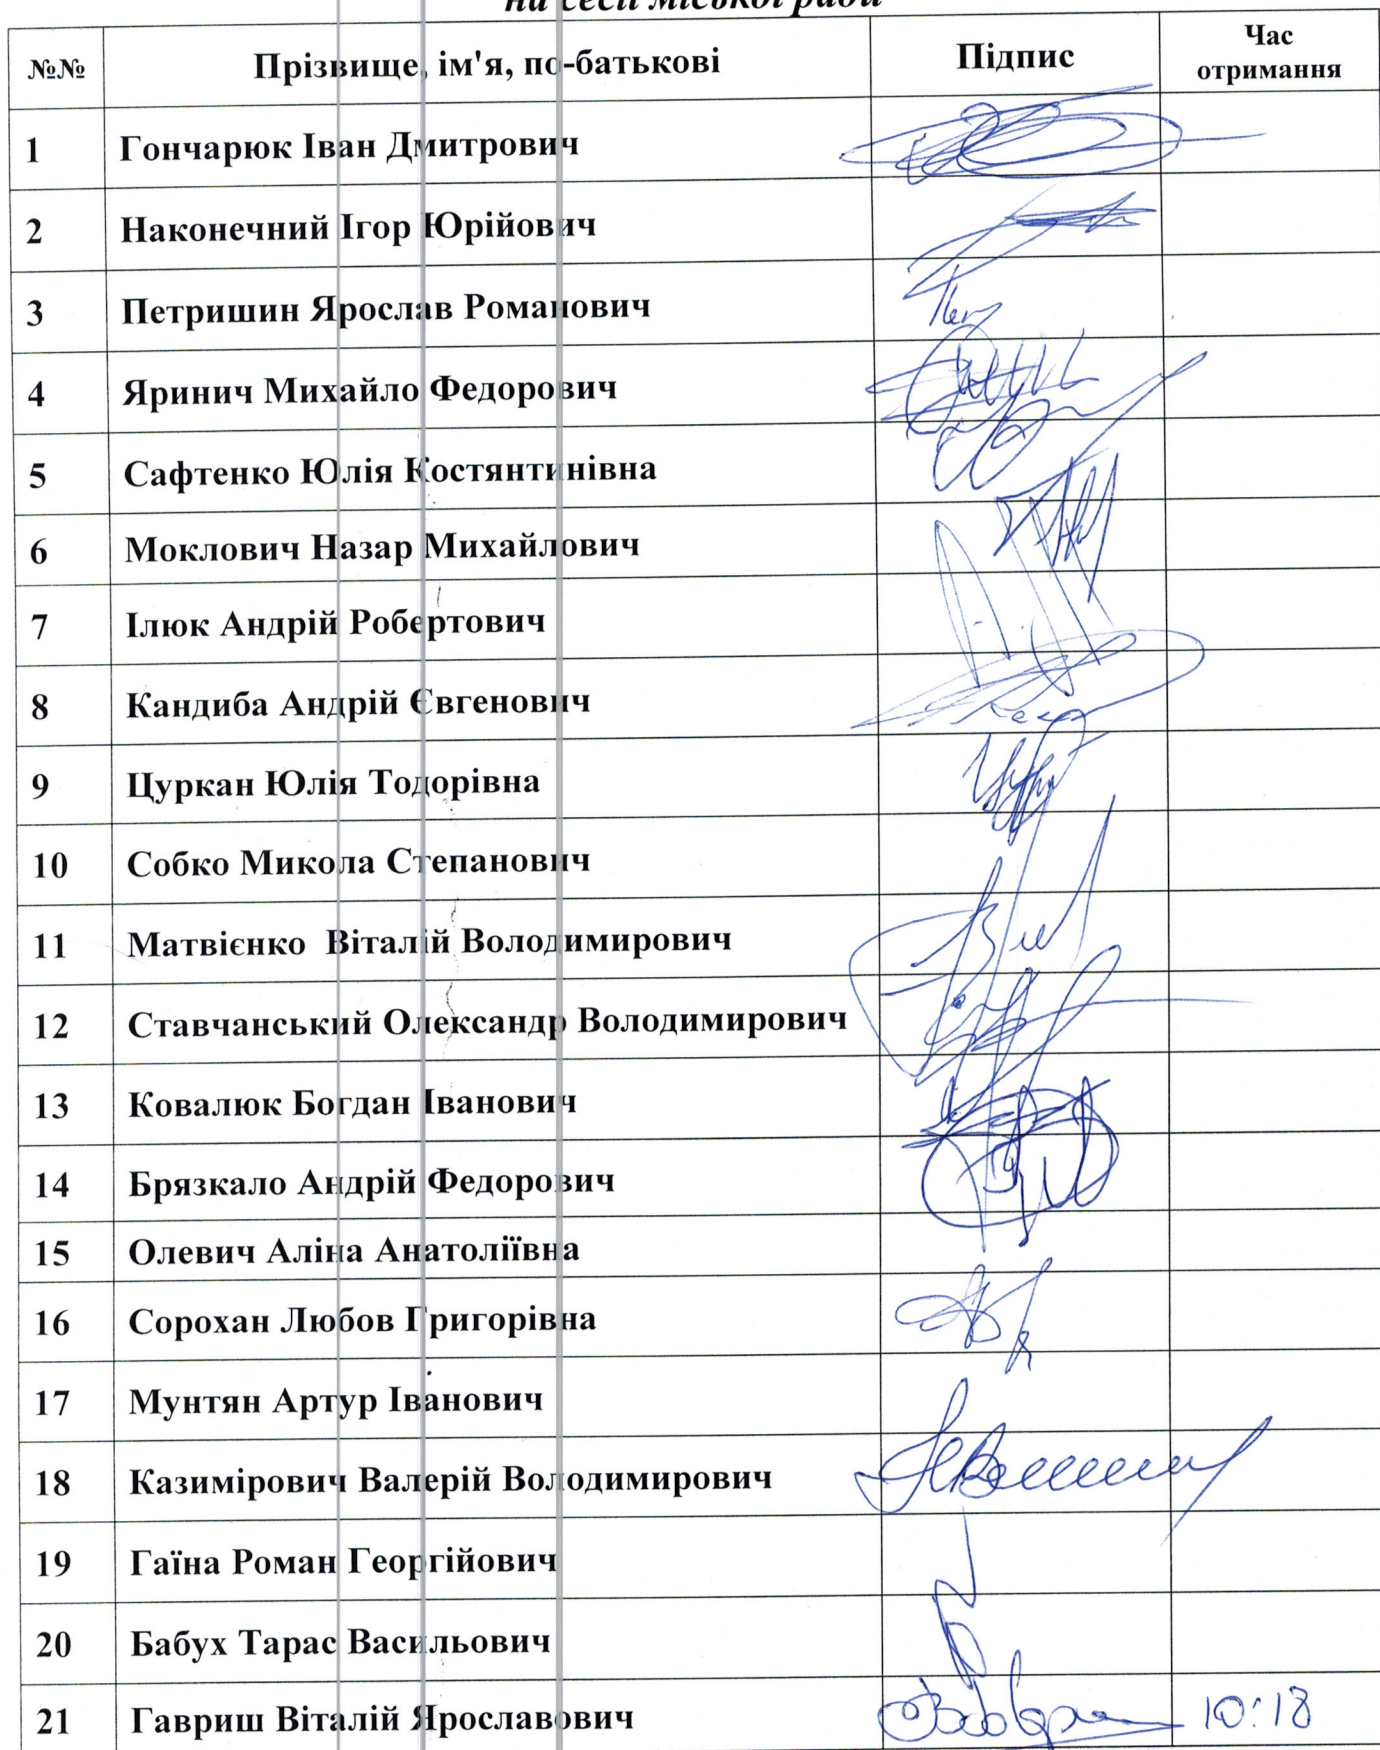 на сесії міської ради
№№ Прізвище, ім'я, по-батькові Підпис Час отримання
1 Гончарюк Іван Дмитрович
2 Наконечний Ігор Юрійович
3 Петришин Ярослав Романович
4 Яринич Михайло Федорович
5 Сафтенко Юлія Костянтинівна
6 Моклович Назар Михайлович
7 Ілюк Андрій Робертович
8 Кандиба Андрій Євгенович
9 Цуркан Юлія Тодорівна
10 Собко Микола Степанович
11 Матвієнко Віталій Володимирович
12 Ставчанський Олександр Володимирович
13 Ковалюк Богдан Іванович
14 Брязкало Андрій Федорович
15 Олевич Аліна Анатоліївна
16 Сорохан Любов Григорівна
17 Мунтян Артур Іванович
18 Казимірович Валерій Володимирович
19 Гаїна Роман Георгійович
20 Бабух Тарас Васильович
21 Гавриш Віталій Ярославович 10:18